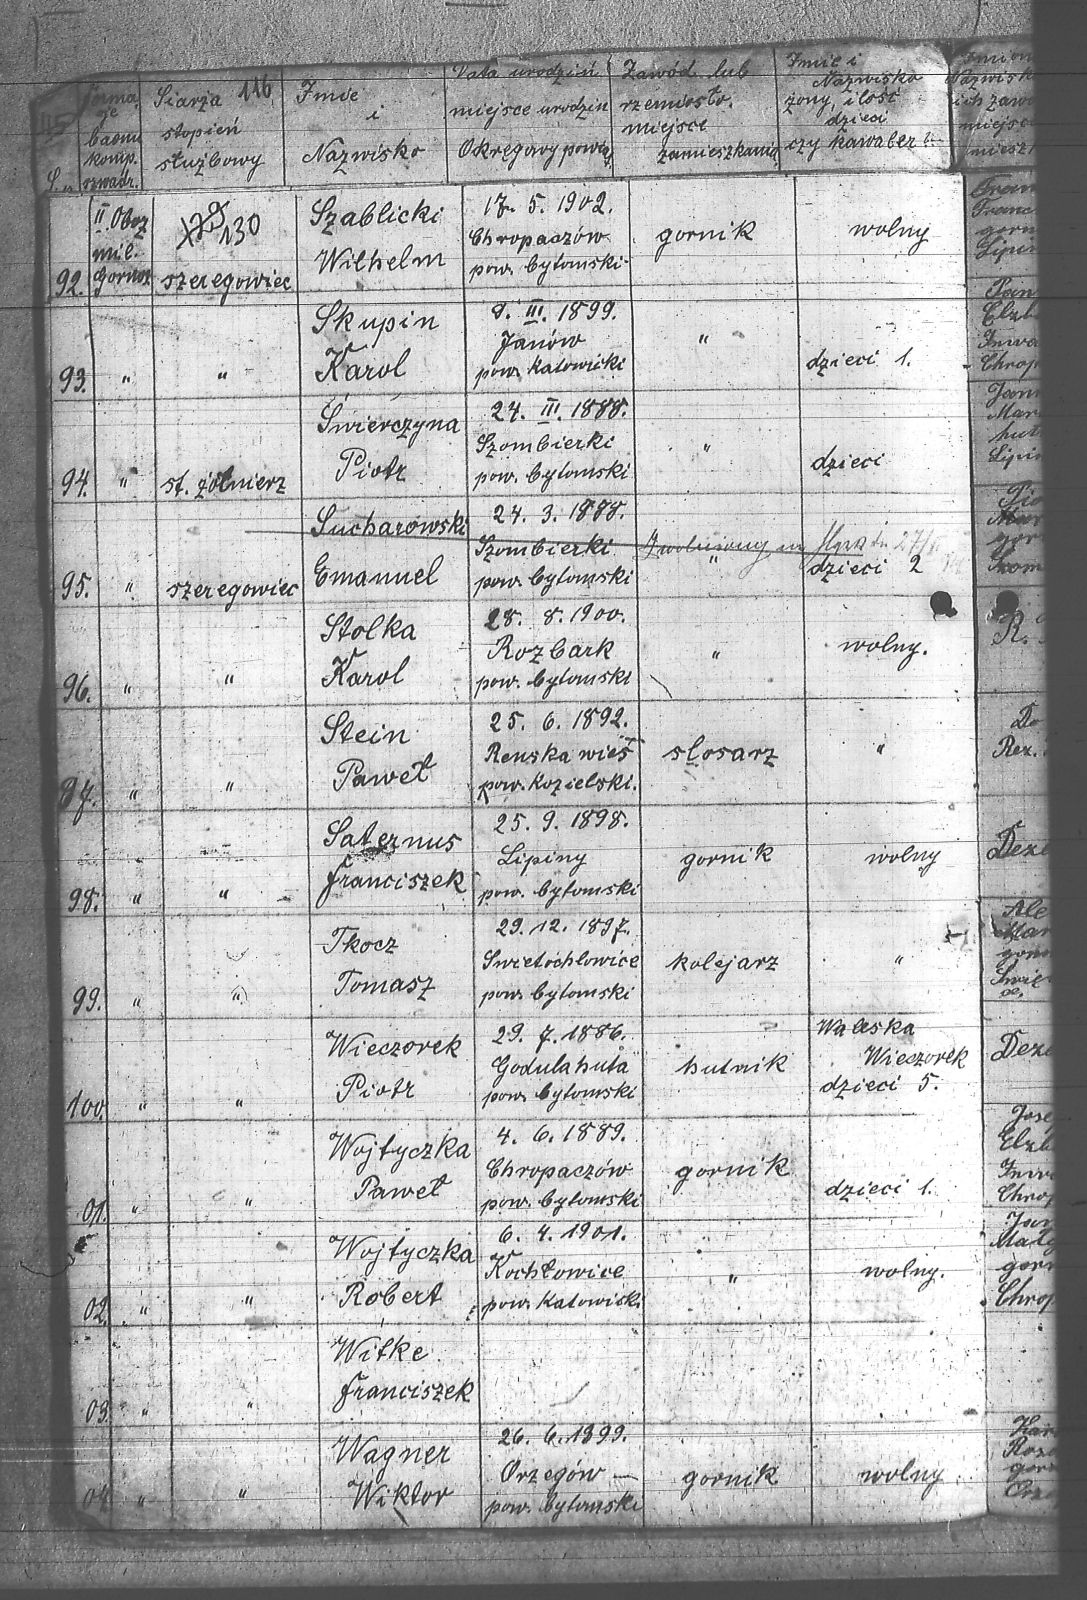 Szarża 116
stopień
służbowy
Imie
i
Nazwisko
Data urodzin
miejsce urodzin
Okręgowy powiat
Zawód lub
rzemiosło.
miejsce
zamieszkania
Imie i
Nazwisko
żony, ilość
dzieci
czy kawaler
92. II Oboz szeregowiec 130
Szablicki
Wilhelm
17. 5. 1902.
Chropaczów
pow. bytomski
gornik
wolny
93. " "
Skupin
Karol
9. III. 1899.
Janów
pow. Katowicki
"
dzieci 1.
94. " st. żołnierz
Świerczyna
Piotr
24. III. 1888.
Szombierki
pow. bytomski
"
dzieci
95. " szeregowiec
Sucharowski
Emanuel
24. 3. 1888.
Szombierki
pow. bytomski
"
dzieci 2
96. " "
Stolka
Karol
28. 8. 1900.
Rozbark
pow. bytomski
"
wolny.
97. " "
Stein
Paweł
25. 6. 1892.
Renska wieś
pow. Kozielski.
slosarz
"
98. " "
Saternus
Franciszek
25. 9. 1898.
Lipiny
pow. bytomski
gornik
wolny
99. " "
Tkocz
Tomasz
29. 12. 1897.
Swietochlowice
pow. bytomski
kolejarz
"
100. " "
Wieczorek
Piotr
29. 7. 1886.
Godulahuta
pow. bytomski
hutnik
Waleska
Wieczorek
dzieci 5.
01. " "
Wojtyczka
Paweł
4. 6. 1889.
Chropaczów
pow. bytomski
gornik
dzieci 1.
02. " "
Wojtyczka
Robert
6. 4. 1901.
Kochłowice
pow. Katowiski
"
wolny.
03. " "
Witke
Franciszek
04. " "
Wagner
Wiktor
26. 6. 1899.
Orzegów —
pow. bytomski
gornik
wolny